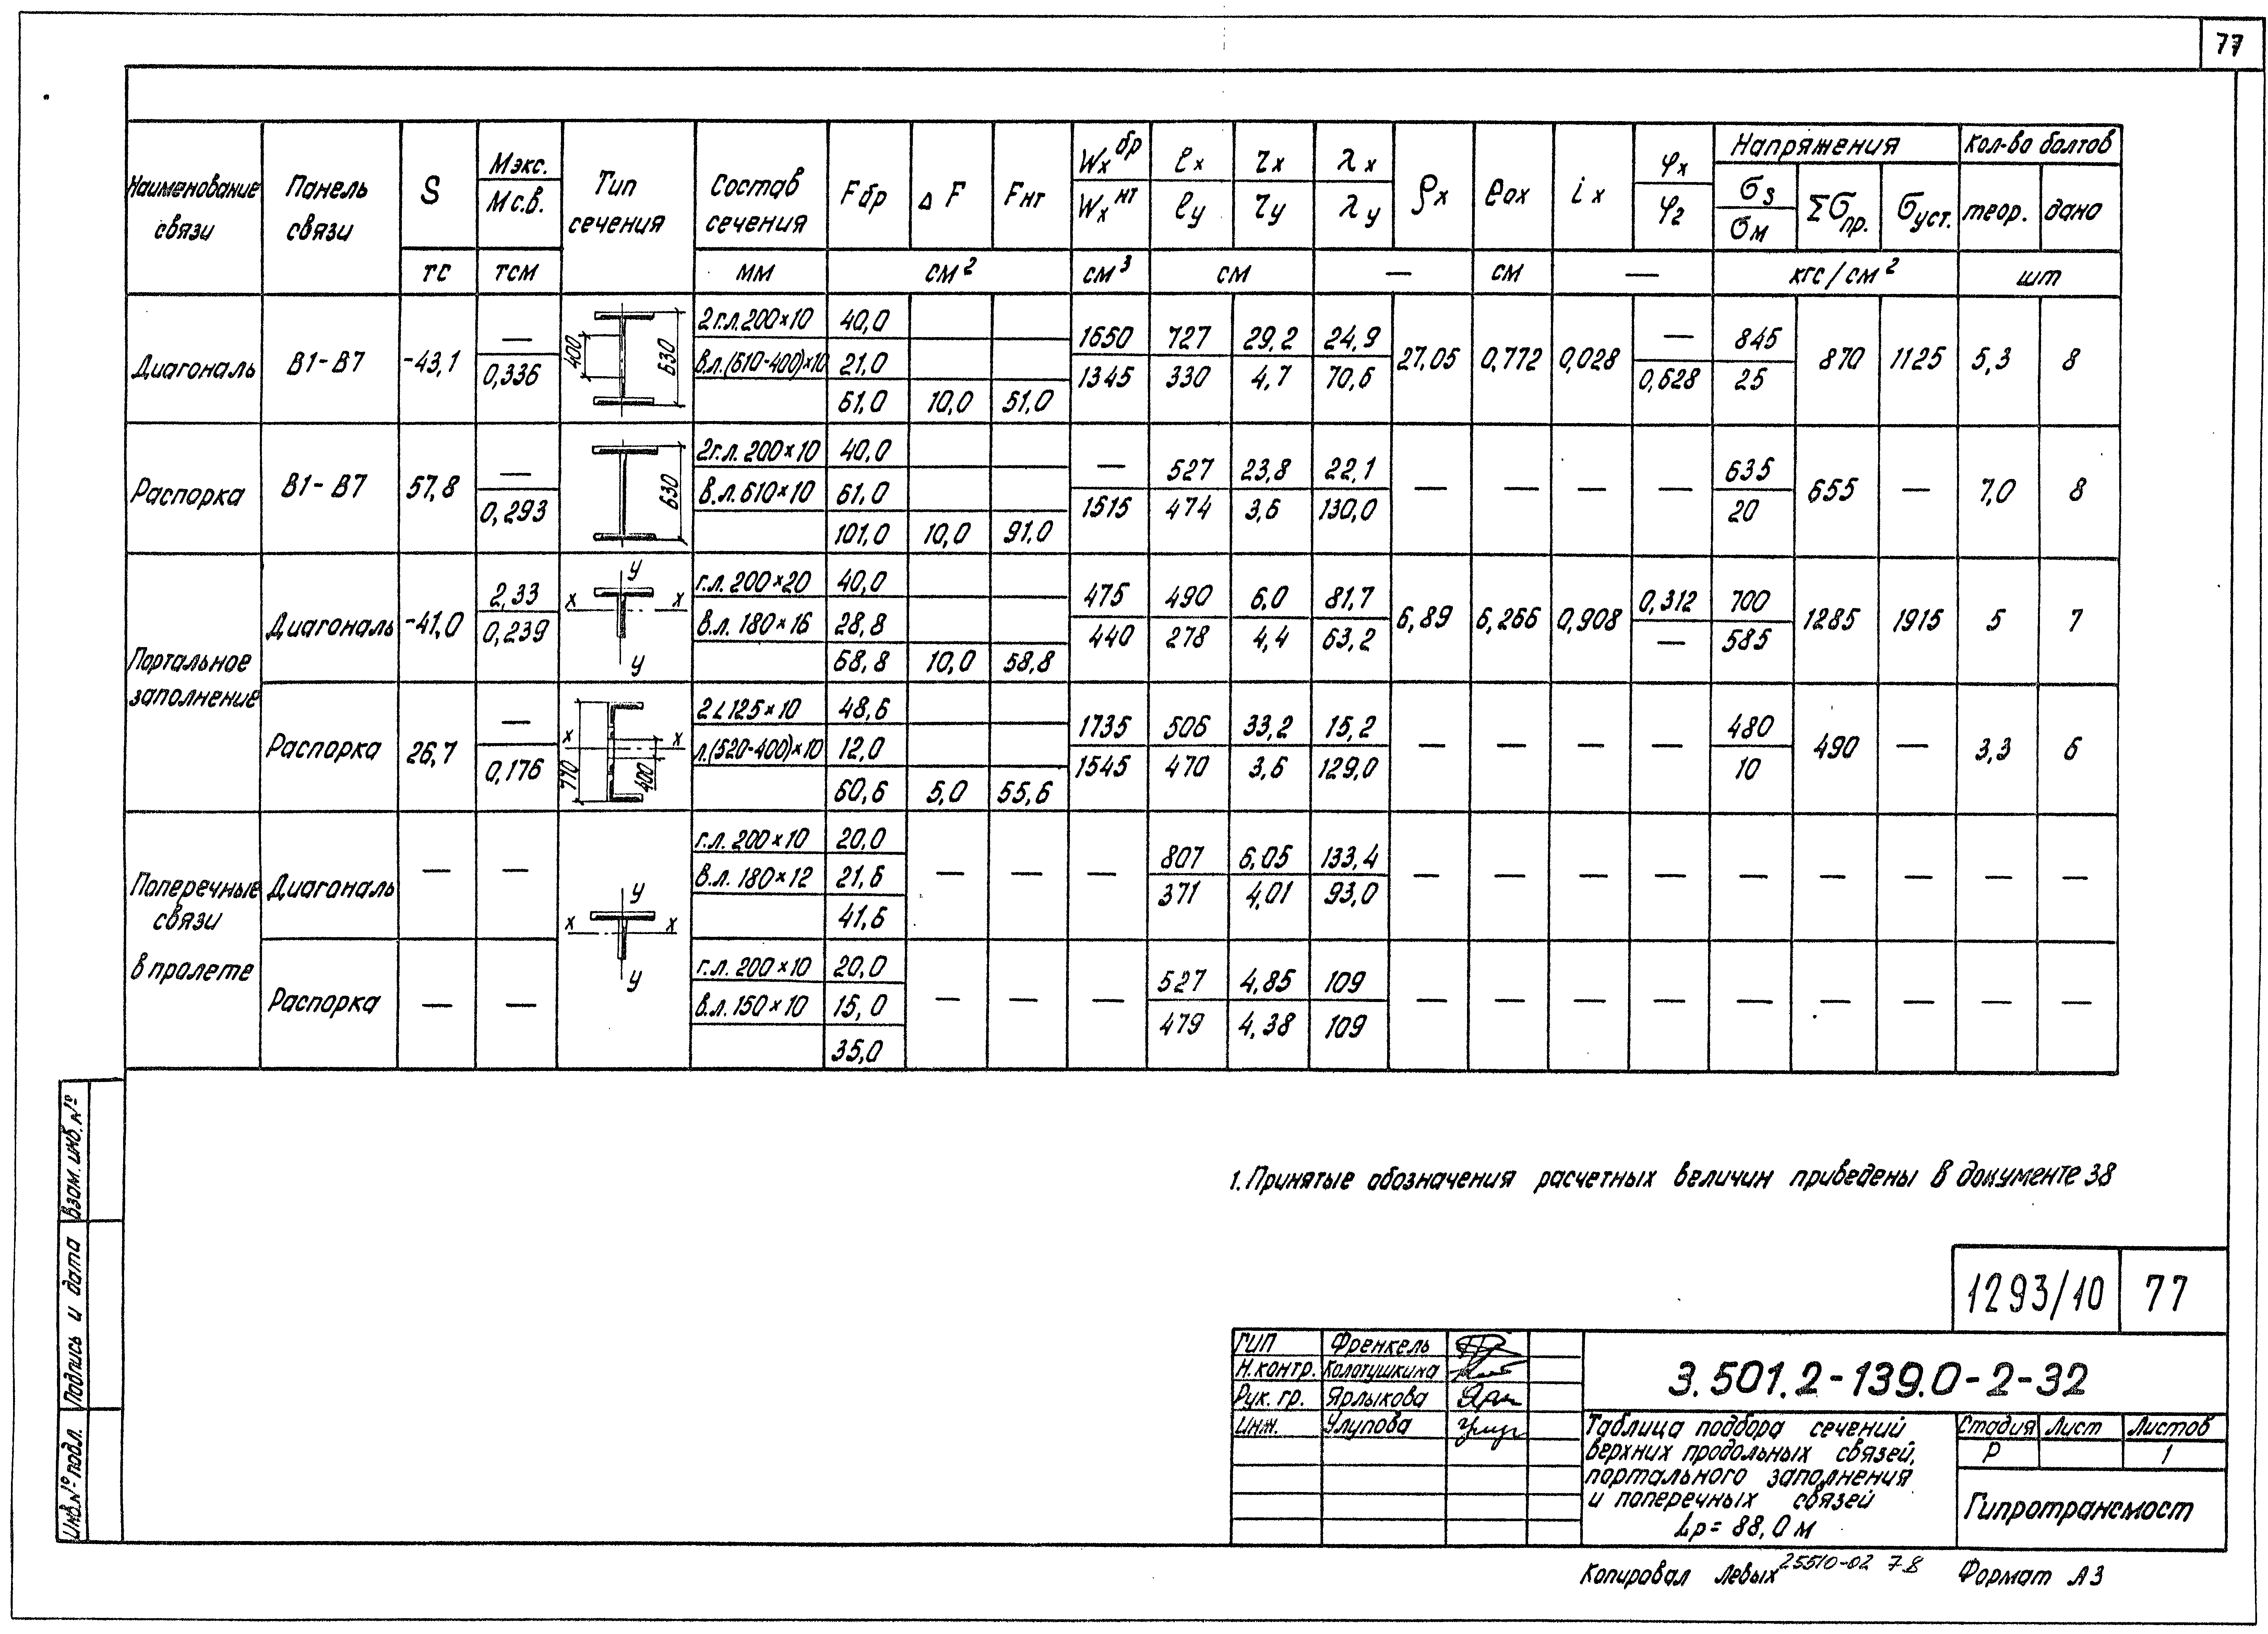 77
Наименование связи | Панель связи | S | Мэкс. / Мс.в. | Тип сечения | Состав сечения | Fбр | ΔF | Fнт | Wx бр / Wx нт | ℓx / ℓy | ƶx / ƶy | λx / λy | ρx | e0x | ix | φx / φ2 | Напряжения | Кол-во болтов
σз / σм | Σσпр. | σуст. | теор. | дано
тс | тсм | мм | см² | см³ | см | — | см | — | кгс/см² | шт
Диагональ | В1-В7 | -43,1 | — / 0,336 | 400 | 630 | 2г.л.200×10 | 40,0 | 1650 / 1345 | 727 / 330 | 29,2 / 4,7 | 24,9 / 70,6 | 27,05 | 0,772 | 0,028 | — / 0,628 | 845 / 25 | 870 | 1125 | 5,3 | 8
в.л.(610-400)×10 | 21,0
61,0 | 10,0 | 51,0
Распорка | В1-В7 | 57,8 | — / 0,293 | 630 | 2г.л. 200×10 | 40,0 | — / 1515 | 527 / 474 | 23,8 / 3,6 | 22,1 / 130,0 | — | — | — | — | 635 / 20 | 655 | — | 7,0 | 8
в.л. 610×10 | 61,0
101,0 | 10,0 | 91,0
Портальное заполнение
Диагональ | -41,0 | 2,33 / 0,239 | у | х | х | у | г.л. 200×20 | 40,0 | 475 / 440 | 490 / 278 | 6,0 / 4,4 | 81,7 / 63,2 | 6,89 | 6,266 | 0,908 | 0,312 / — | 700 / 585 | 1285 | 1915 | 5 | 7
в.л. 180×16 | 28,8
68,8 | 10,0 | 58,8
Распорка | 26,7 | — / 0,176 | х | х | 770 | 400 | 2∠125×10 | 48,6 | 1735 / 1545 | 506 / 470 | 33,2 / 3,6 | 15,2 / 129,0 | — | — | — | — | 480 / 10 | 490 | — | 3,3 | 6
л.(520-400)×10 | 12,0
60,6 | 5,0 | 55,6
Поперечные связи в пролете
Диагональ | — | — | у | х | х | у | г.л. 200×10 | 20,0 | — | — | — | 807 / 371 | 6,05 / 4,01 | 133,4 / 93,0 | — | — | — | — | — | — | — | — | —
в.л. 180×12 | 21,6
41,6
Распорка | — | — | г.л. 200×10 | 20,0 | — | — | — | 527 / 479 | 4,85 / 4,38 | 109 / 109 | — | — | — | — | — | — | — | — | —
в.л. 150×10 | 15,0
35,0
1. Принятые обозначения расчетных величин приведены в документе 38
1293/10 | 77
ГИП | Френкель
Н.контр. | Колотушкина
Рук. гр. | Ярлыкова
Инж. | Улупова
3.501.2-139.0-2-32
Таблица подбора сечений
верхних продольных связей,
портального заполнения
и поперечных связей
Lp = 88,0 м
Стадия | Лист | Листов
Р | 1
Гипротрансмост
Копировал Левых 25510-02 78 Формат А3
Инв.№ подл. | Подпись и дата | Взам. инв. №